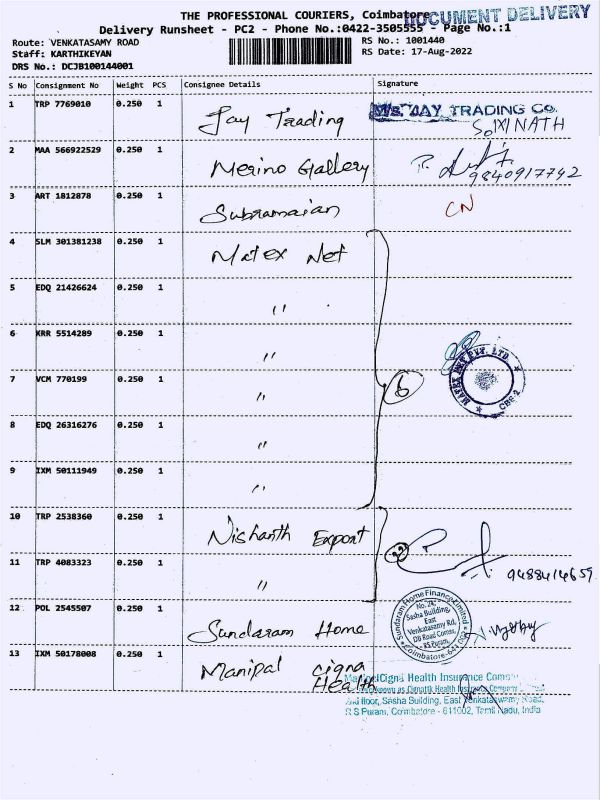 THE PROFESSIONAL COURIERS, Coimbatore
DOCUMENT DELIVERY
Delivery Runsheet - PC2 - Phone No.:0422-3505555 - Page No.:1
Route: VENKATASAMY ROAD
RS No.: 1001440
Staff: KARTHIKEYAN
RS Date: 17-Aug-2022
DRS No.: DCJB100144001
S No Consignment No Weight PCS Consignee Details Signature
1 TRP 7769010 0.250 1 Jay Trading M/s. JAY TRADING CO.
2 MAA 566922529 0.250 1 Merino Gallery 9840917742
3 ART 1812878 0.250 1 Subramaian CN
4 SLM 301381238 0.250 1 Matex Net
5 EDQ 21426624 0.250 1 "
6 KRR 5514289 0.250 1 "
7 VCM 770199 0.250 1 " 6 MATEX NET PVT. LTD. CBE-2
8 EDQ 26316276 0.250 1 "
9 IXM 50111949 0.250 1 "
10 TRP 2538360 0.250 1 Nishanth Export
11 TRP 4083323 0.250 1 " 9488414659
12 POL 2545507 0.250 1 Sundaram Home
Sundaram Home Finance Limited
No. 24,
Sasha Building,
East
Venkatasamy Rd,
DB Road Corner,
RS Puram,
Coimbatore-641 002
13 IXM 50178008 0.250 1 Manipal Cigna Health
ManipalCigna Health Insurance Company
2nd floor, Sasha Building, East Venkataswamy Road,
R S Puram, Coimbatore - 611002, Tamil Nadu, India